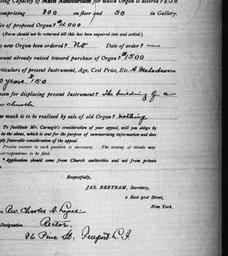 ing Capacity of Main Auditorium for which Organ is desired?
omprising 300 on floor and 50 in Gallery.
of proposed Organ? $2000
(Form should not be returned till this has been enquired into and settled.)
new Organ been ordered? No Date of order? —
ount already raised toward purchase of Organ? $1500
articulars of present Instrument, Age, Cost Price, Etc. A Melodeon
years. $150
son for displacing present Instrument? The building of a
church
much is to be realized by sale of old Organ? nothing
To facilitate Mr. Carnegie's consideration of your appeal, will you oblige by
the above, which is used for the purpose of summarizing information and
ply favorable consideration of the appeal.
Precise answer to each question is necessary. The issuing of blanks may
correspondence to be filed.
* Application should come from Church authorities and not from private
Respectfully,
JAS. BERTRAM, Secretary,
2 East 91st Street,
New York.
Rev. Charles
Designation Rector.
Pine St. Freeport L.I.